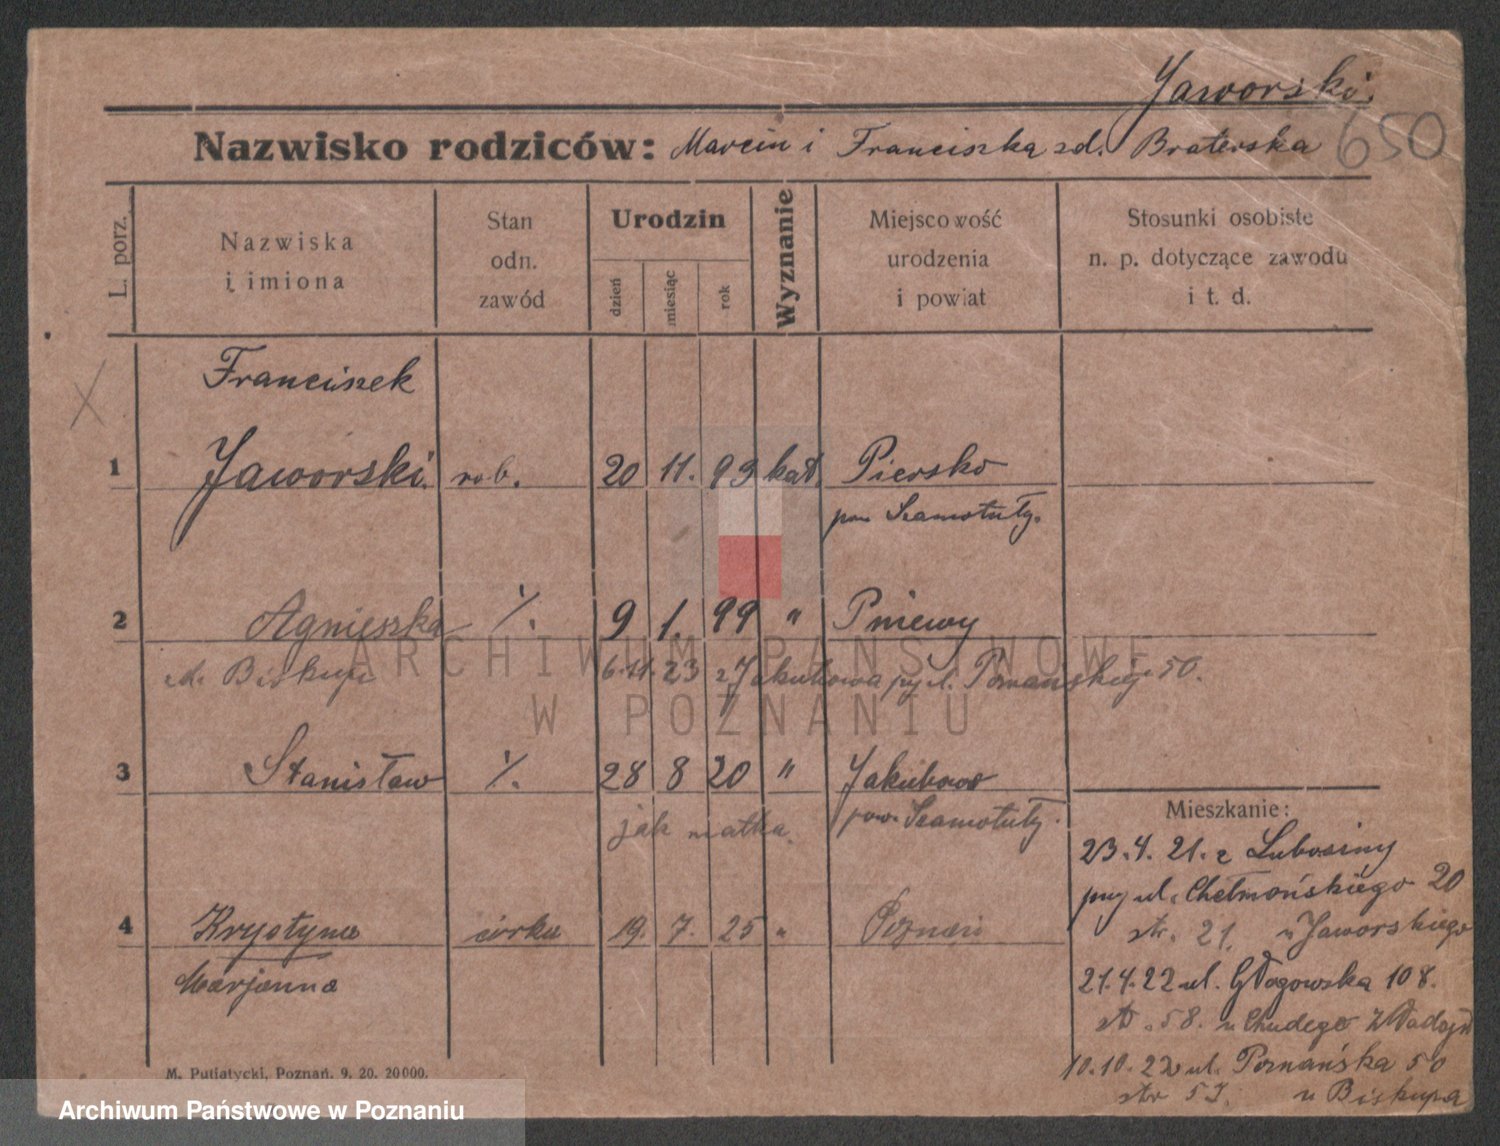 Jaworski.
650
Nazwisko rodziców: Marcin i Franciszka zd. Braterska
L. porz.
Nazwiska i imiona
Stan odn. zawód
Urodzin
dzień
miesiąc
rok
Wyznanie
Miejscowość urodzenia i powiat
Stosunki osobiste n. p. dotyczące zawodu i t. d.
Franciszek
1 Jaworski. rob. 20 11. 93 kat. Piersko
pow Szamotuły.
2 Agnieszka ./. 9 1. 99 " Pniewy
zd. Biskup 6.11.23 z Jakubowa pzy ul. Poznańskiej 50.
3 Stanisław ./. 28 8 20 " Jakubowo
pow. Szamotuły.
jak matka
4 Krystyna córka 19. 7. 25 " Poznań
Marjanna
Mieszkanie:
23.4.21. z Lubosiny
pzy ul. Chełmońskiego 20
str. 21. u Jaworskiego
21.4.22 ul. Głogowska 108.
str. 58. u Chudego
10.10.22 ul. Poznańska 50
str 57. u Biskupa
M. Putiatycki, Poznań. 9. 20. 20000.
ARCHIWUM PAŃSTWOWE
W POZNANIU
Archiwum Państwowe w Poznaniu